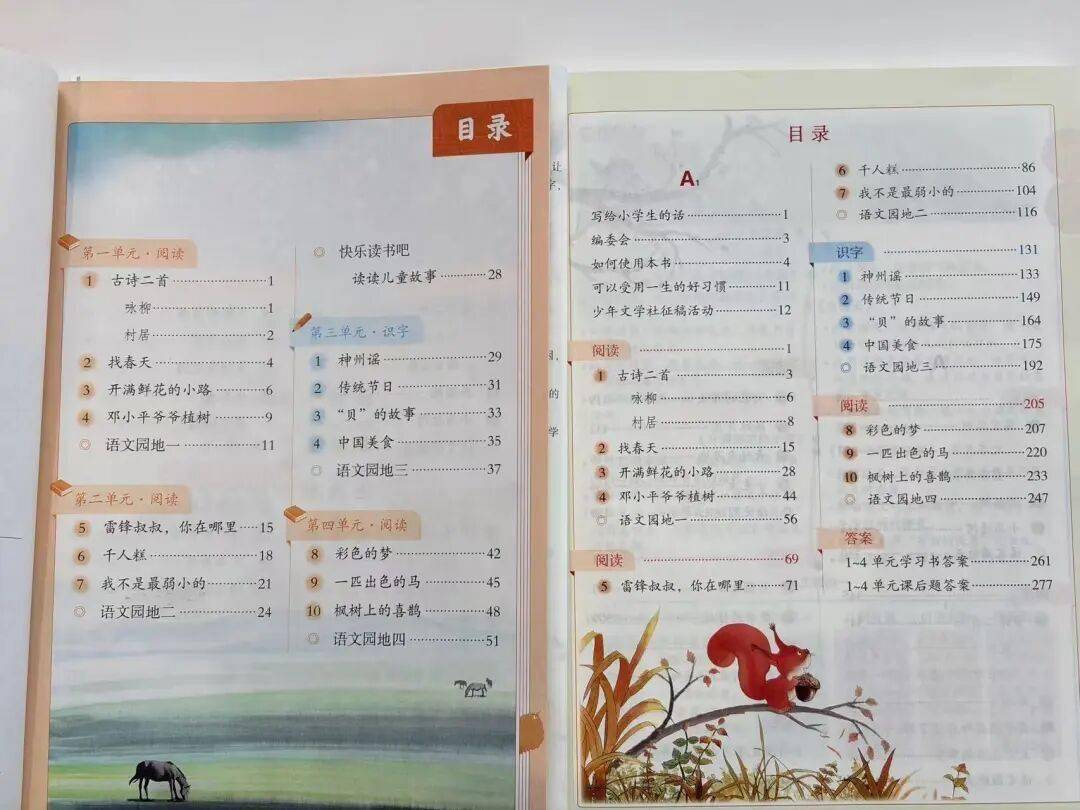 目录
第一单元·阅读
1 古诗二首……1
咏柳……1
村居……2
2 找春天……4
3 开满鲜花的小路……6
4 邓小平爷爷植树……9
◎ 语文园地一……11
第二单元·阅读
5 雷锋叔叔，你在哪里……15
6 千人糕……18
7 我不是最弱小的……21
◎ 语文园地二……24
◎ 快乐读书吧
读读儿童故事……28
第三单元·识字
1 神州谣……29
2 传统节日……31
3 “贝”的故事……33
4 中国美食……35
◎ 语文园地三……37
第四单元·阅读
8 彩色的梦……42
9 一匹出色的马……45
10 枫树上的喜鹊……48
◎ 语文园地四……51
目录
A1
写给小学生的话……1
编委会……3
如何使用本书……4
可以受用一生的好习惯……11
少年文学社征稿活动……12
阅读……1
1 古诗二首……3
咏柳……6
村居……8
2 找春天……15
3 开满鲜花的小路……28
4 邓小平爷爷植树……44
◎ 语文园地一……56
阅读……69
5 雷锋叔叔，你在哪里……71
6 千人糕……86
7 我不是最弱小的……104
◎ 语文园地二……116
识字……131
1 神州谣……133
2 传统节日……149
3 “贝”的故事……164
4 中国美食……175
◎ 语文园地三……192
阅读……205
8 彩色的梦……207
9 一匹出色的马……220
10 枫树上的喜鹊……233
◎ 语文园地四……247
答案
1~4单元学习书答案……261
1~4单元课后题答案……277